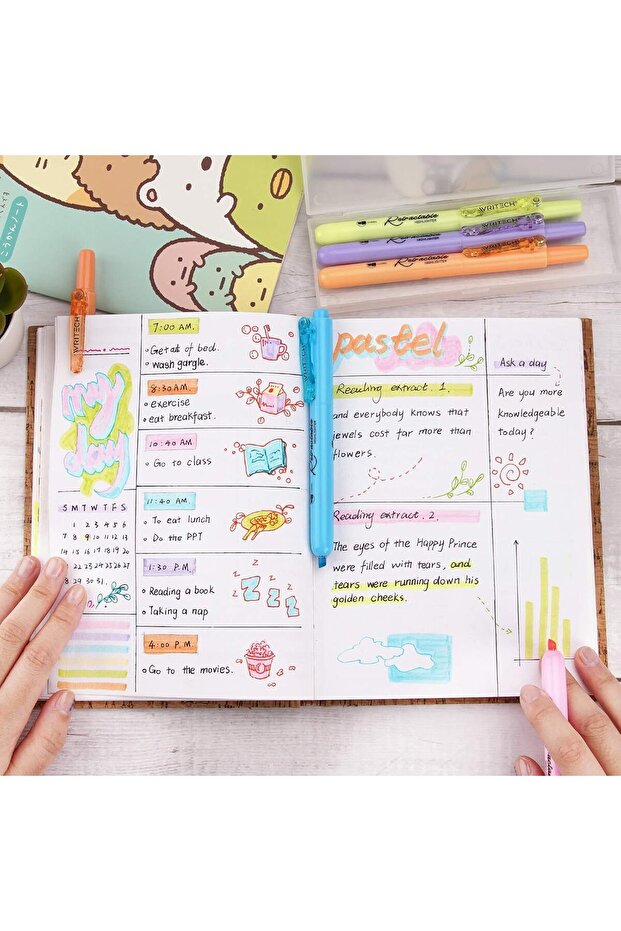 こうかんノート
WRITECH
Retractable
HIGHLIGHTER
WRITECH
Retractable
HIGHLIGHTER
WRITECH
Retractable
HIGHLIGHTER
WRITECH
may
day
S M T W T F S
1 2 3 4 5 6
7 8 9 10 11 12 13
14 15 16 17 18 19 20
22 23 24 25 26 27
28 29 30 31.
7:00 AM.
Get out of bed.
wash gargle.
8:30 AM.
exercise
eat breakfast.
10:40 AM
Go to class
11:40 AM.
To eat lunch
Do the PPT
1:30 P.M
Reading a book
Taking a nap
z z z
Z Z Z
4:00 P.M.
Go to the movies.
WRITECH
Retractable
HIGHLIGHTER
pastel
Reading extract 1.
and everybody knows that
jewels cost far more than
flowers.
Reading extract. 2.
The eyes of the Happy Prince
were filled with tears, and
tears were running down his
golden cheeks.
Ask a day
Are you more
knowledgeable
today?